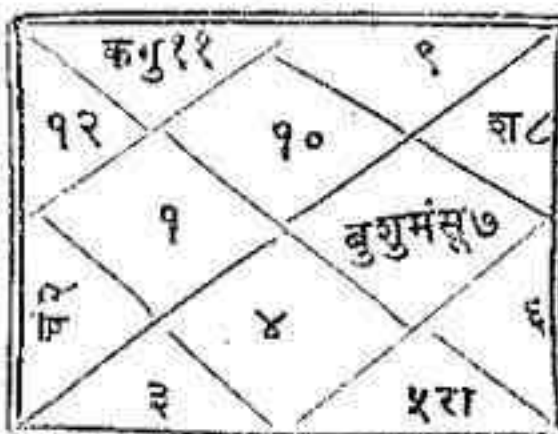 कगु११
९
१२
१०
श८
१
बुशुमंसू७
चं२
४
६
३
५रा